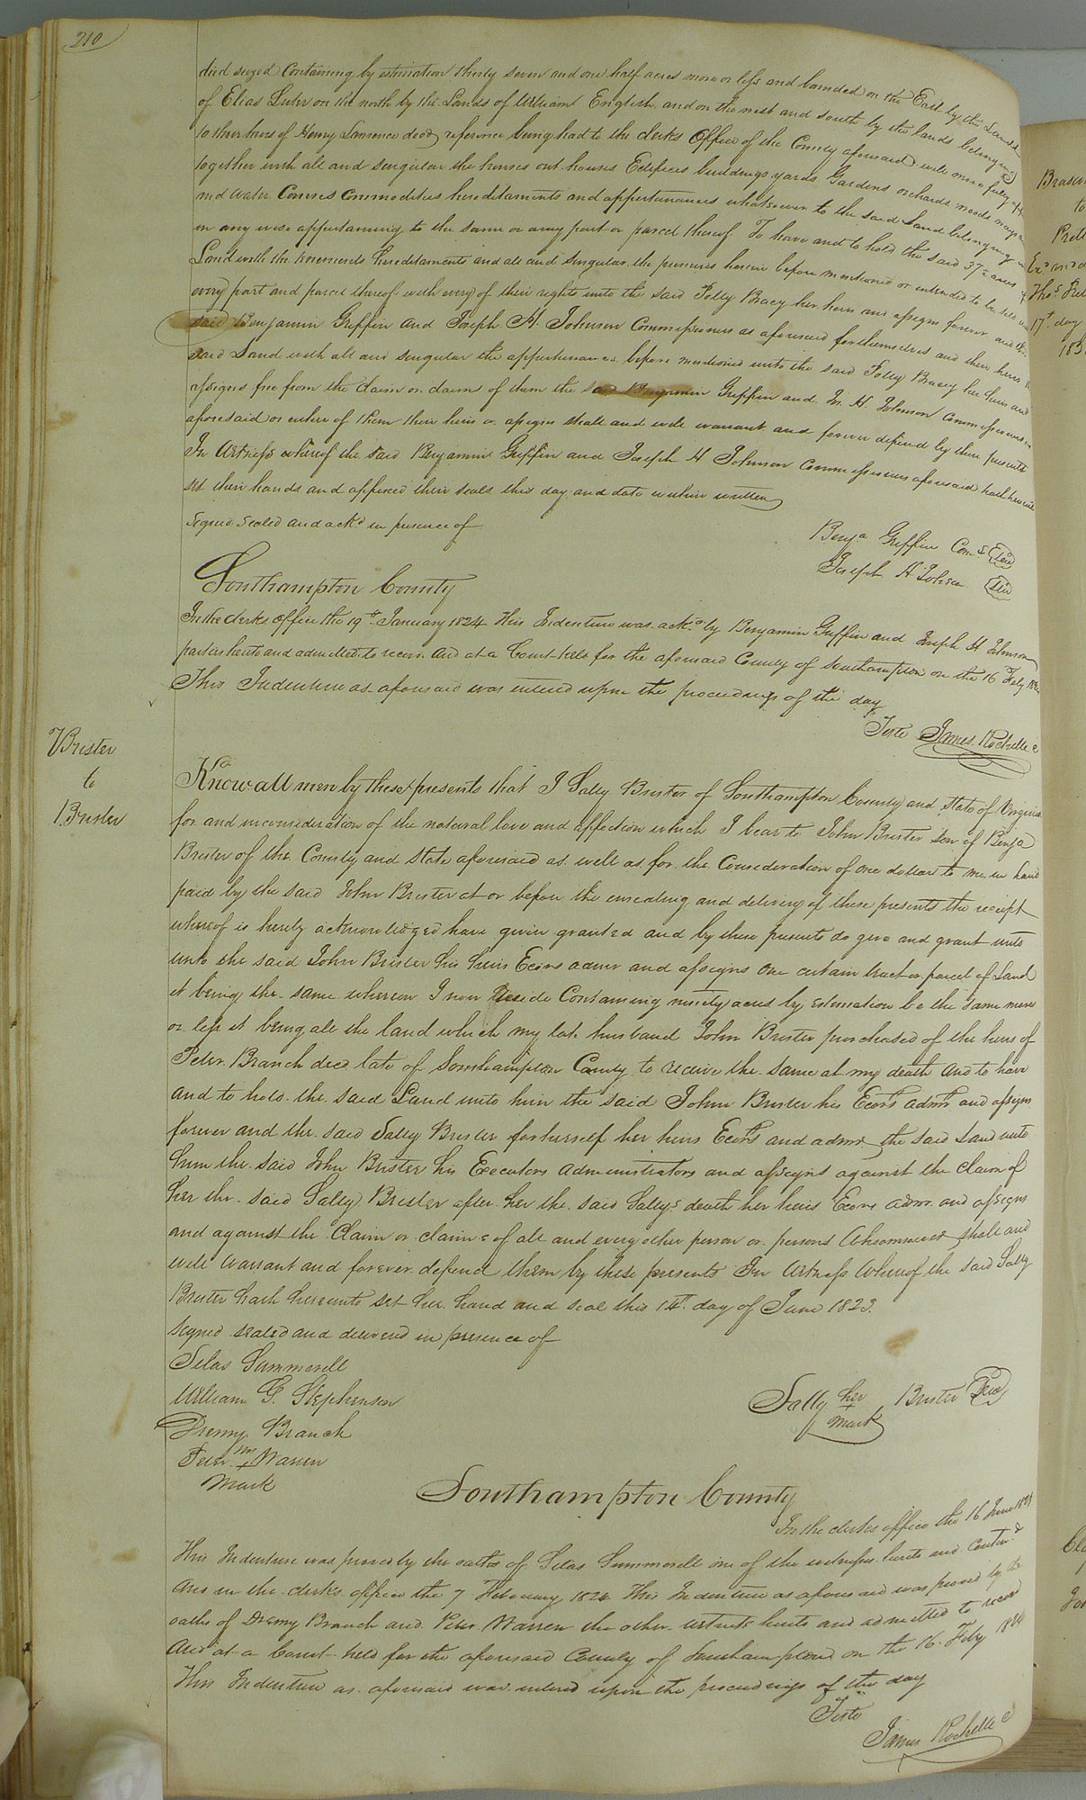 210
died seized Containing by estimation thirty seven and one half acres more or less and bounded on the East by the Lands
of Elias Luter on the north by the Lands of William English and on the west and south by the lands belonging
to the heirs of Henry Lawrence decd reference being had to the clerks Office of the County aforesaid will more fully
together with all and singular the houses out houses Edifices buildings yards Gardens orchards woods ways
and water Courses Commodities hereditaments and appurtenances whatsoever to the said Land belonging
in any wise appertaining to the same or any part or parcel thereof. To have and to hold the said 37½ acres of
Land with the tenements hereditaments and all and singular the premises herein before mentioned or intended to be
every part and parcel thereof with every of their rights unto the said Polly Bracy her heirs and assigns forever and the
said Benjamin Griffin and Joseph H. Johnson Commissioners as aforesaid for themselves and their heirs
said Land with all and singular the appurtenances before mentioned unto the said Polly Bracy her heirs and
assigns free from the claim or claims of them the said Benjamin Griffin and Jos. H. Johnson Commissioners
aforesaid or either of them their heirs or assigns shall and will warrant and forever defend by these presents
In Witness whereof the said Benjamin Griffin and Joseph H Johnson Commissioners aforesaid hath hereunto
set their hands and affixed their seals this day and date within written
Signed Sealed and ackd in presence of
Benja Griffin Coms Seal
Joseph H Johnson Seal
Southampton County
In the clerks office the 19th January 1824 This Indenture was ackd by Benjamin Griffin and Joseph H Johnson
parties hereto and admitted to record. And at a Court held for the aforesaid County of Southampton on the 16 Feby 1824
This Indenture as aforesaid was entered upon the proceedings of the day
Teste James Rochelle C
Brister
to
Brister
Know all men by these presents that I Sally Brister of Southampton County and State of Virginia
for and in consideration of the natural love and affection which I bear to John Brister son of Benja
Brister of the County and State aforesaid as well as for the Consideration of one dollar to me in hand
paid by the said John Brister at or before the ensealing and delivery of these presents the receipt
whereof is hereby acknowledged have given granted and by these presents do give and grant unto
unto the said John Brister his heirs Ecors admr and assigns one certain tract or parcel of Land
it being the same whereon I now reside Containing ninety acres by estimation be the same more
or less it being all the land which my late husband John Brister purchased of the heirs of
Peter Branch decd late of Southampton County to receive the same at my death and to have
and to hold the said Land unto him the said John Brister his Ecors admr and assigns
forever and the said Sally Brister for herself her heirs Ecors and admr the said Land unto
him the said John Brister his Executors administrators and assigns against the claim of
her the said Sally Brister after her the said Sallys death her heirs Ecors admr and assigns
and against the Claim or claims of all and every other person or persons Whomsoever shall and
will warrant and forever defend them by these presents In Witness Whereof the said Sally
Brister hath hereunto set her hand and seal this 14th day of June 1823.
Signed sealed and delivered in presence of
Silas Summerell
William G. Stephenson
Drewry Branch
Peter his + Warren
Mark
Sally her + mark Brister Seal
Southampton County
In the clerks office the 16 June 1823
This Indenture was proved by the oath of Silas Summerell one of the witnesses hereto and Contd
And in the clerks office the 7 February 1824 This Indenture as aforesaid was proved by the
oaths of Drewry Branch and Peter Warren the other witnesses hereto and admitted to record
And at a Court held for the aforesaid County of Southampton on the 16 Feby 1824
This Indenture as aforesaid was entered upon the proceedings of the day
Teste
James Rochelle C
to
17th day